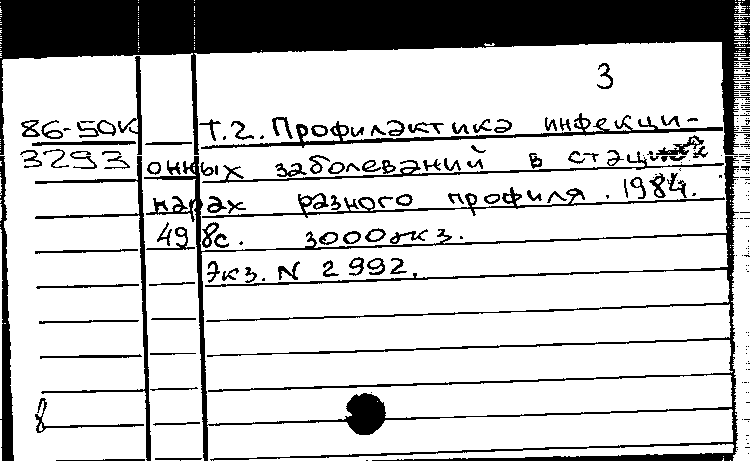 3
86-50к Т.2. Профилактика инфекци-
3293 онных заболеваний в стацио-
нарах разного профиля. 1984.
498с. 3000экз.
Экз. N 2992.
8